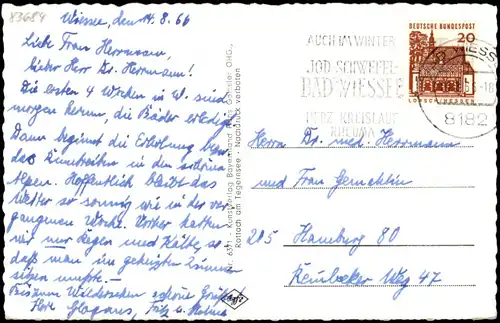 83684
Wiessee, den 14.8.66
Liebe Frau Herrmann,
lieber Herr Dr. Herrmann!
Die ersten 4 Wochen in W. sind
morgen herum, die Bäder erledigt.
Dann beginnt die Erholung bzw.
das in den schönen
Alpen. Hoffentlich bleibt das
Wetter so sonnig wie in der ver-
gangenen Woche. Vorher hatten
wir nur Regen und Kälte, so
daß man im geheizten Zimmer
sitzen mußte.-
Bis zum Wiedersehen schöne Grüße
Ihre Fritz u.
Nr. 6371 - Kunstverlag Bayerland Ludw. Gansler OHG.,
Rottach am Tegernsee - Nachdruck verboten
Agfa
AUCH IM WINTER
JOD-SCHWEFEL-
BAD WIESSEE
HERZ KREISLAUF
RHEUMA
DEUTSCHE BUNDESPOST
20
LORSCH/HESSEN
8182
Herrn Dr. med. Herrmann
und Frau Gemahlin
205 Hamburg 80
Reinbeker Weg 47